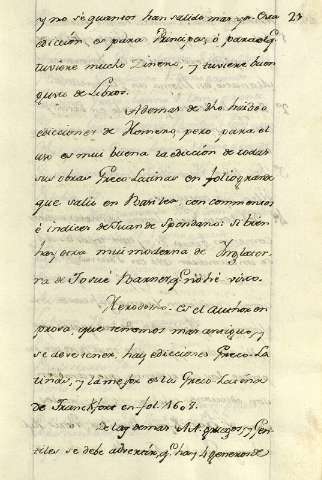 y no sè quantos han salido mas ya. Esta 25
edicción, es para Principes, ò para el q.
tuviere mucho Dinero, y tuviere buen
gusto de Libros.
Ademas de dho haido
edicciones de Homero, pero para el
uso es mui buena la edicción de todas
sus obras Greco-Latinas en folio grande
que saliò en Basilea, con commentos
è indices de Juan de Spondano: si bien
hay otra mui moderna de Inglater-
ra de Josuè Barnes, q. no hè visto.
Herodoto. Es el Author en
prosa, que tenemos mas antiguo, y
se deve tener, hay edicciones Greco-La-
tinas, y la mejor es la Greco Latina
de Franckfort en fol. 1608.
De las demas AA. griegos, y Gen-
tiles se debe advertir, q. hay 4 generos de